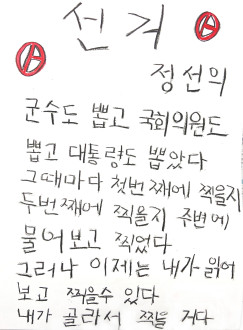 선거
정선의
군수도 뽑고 국회의원도
뽑고 대통령도 뽑았다
그때마다 첫번째에 찍을지
두번째에 찍을지 주변에
물어보고 찍었다
그러나 이제는 내가 읽어
보고 찍을수 있다
내가 골라서 찍을 거다